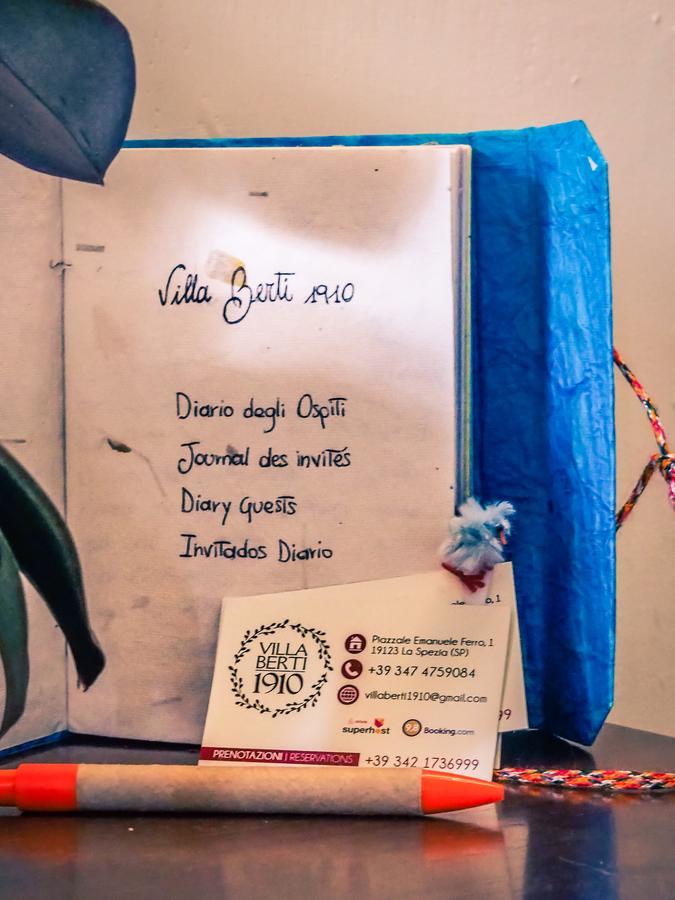 Villa Berti 1910
Diario degli Ospiti
Journal des invités
Diary Guests
Invitados Diario
VILLA
BERTI
1910
Piazzale Emanuele Ferro, 1
19123 La Spezia (SP)
+39 347 4759084
villaberti1910@gmail.com
superhost
Booking.com
PRENOTAZIONI | RESERVATIONS
+39 342 1736999
o, 1
99